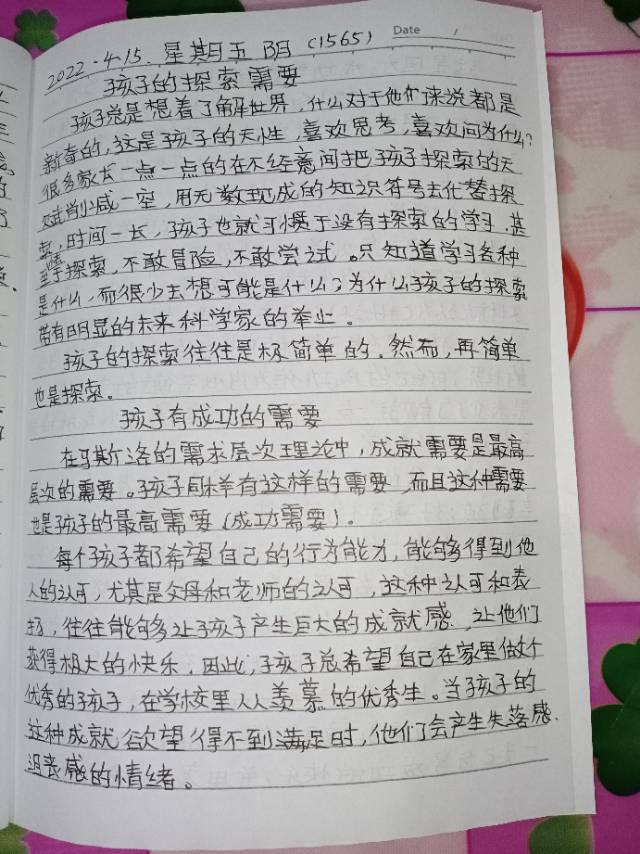 2022.4.15. 星期五 阴 (1565) Date /
孩子的探索需要
孩子总是想着了解世界,什么对于他们来说都是
新奇的,这是孩子的天性,喜欢思考,喜欢问为什么?
很多家长一点一点的在不经意间把孩子探索的天
赋削减一空,用无数现成的知识符号去代替探
索,时间一长,孩子也就习惯于没有探索的学习,甚
至惰于探索,不敢冒险,不敢尝试。只知道学习各种
是什么,而很少去想可能是什么?为什么孩子的探索
带有明显的未来科学家的举止。
孩子的探索往往是极简单的。然而,再简单
也是探索。
孩子有成功的需要
在马斯洛的需求层次理论中,成就需要是最高
层次的需要。孩子同样有这样的需要,而且这种需要
也是孩子的最高需要(成功需要)。
每个孩子都希望自己的行为能力,能够得到他
人的认可,尤其是父母和老师的认可,这种认可和表
扬,往往能够让孩子产生巨大的成就感,让他们
获得极大的快乐,因此,孩子总希望自己在家里做个
优秀的孩子,在学校里人人羡慕的优秀生。当孩子的
这种成就欲望得不到满足时,他们会产生失落感.
沮丧感的情绪。